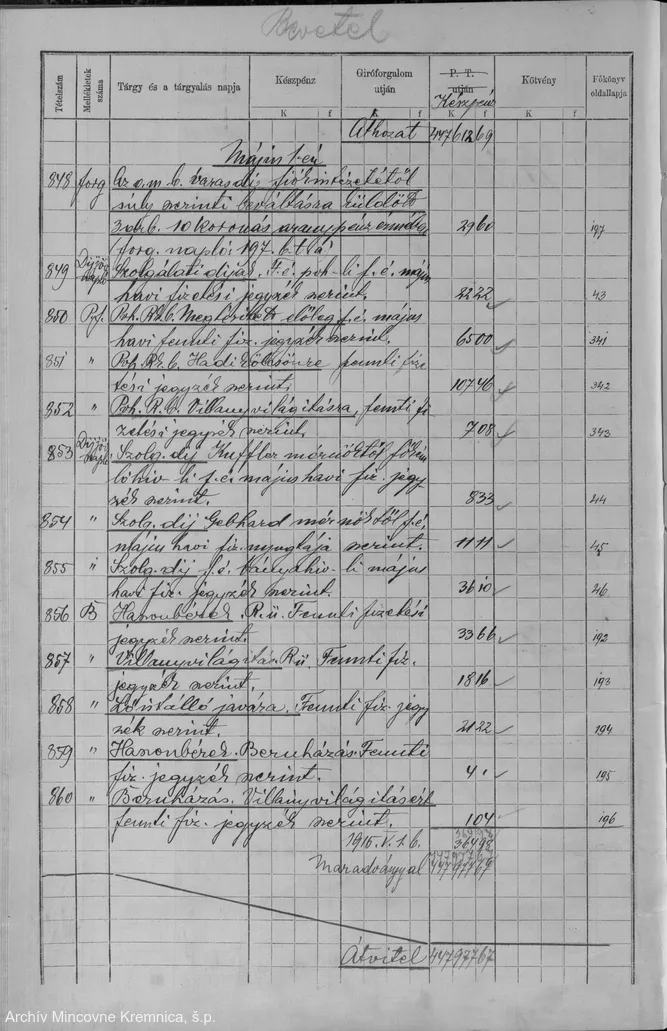 Bevétel
Tételszám
Mellékletek száma
Tárgy és a tárgyalás napja
Készpénz
Giróforgalom útján
P. T. útján
Készpénz
Kötvény
Főkönyv oldallapja
K f K f K f K f
Áthozat 4476 12 69
Május 1-én
848 forg Az o. m. b. varasdi fiókintézetétől
suly szerinti beváltásra küldött
3 drb. 10 koronás aranypénz érméért 29 60 197
(forg. napló: 197. b. t. a)
849 Díjjöv. napló Szolgálati díjak, F. é. poh-li f. é. május
havi fizetési jegyzék szerint. 22 22 43
850 Pf. Poh. Rk. b. Megtérített előleg f. é. május
havi fennti fiz. jegyzék szerint. 65 00 341
851 " Poh. Rk. b. Hadikölcsönre fennti fize
tési jegyzék szerint. 107 46 342
852 " Poh. R. b. Villanyvilágitásra, fennti fi
zetési jegyzék szerint. 7 08 343
853 Díjjöv. napló Szolg. díj Knffler mérnöktől főkém
lőhiv-li f. é. május havi fiz. jegy
zék szerint. 8 33 44
854 " Szolg. díj Gebhard mérnöktől f. é.
május havi fiz. nyugtája szerint. 11 11 45
855 " Szolg. díj f. é. bányahiv-li május
havi fiz. jegyzék szerint. 36 10 46
856 B Haszonbérek. R. ü. Fennti fizetési
jegyzék szerint. 33 66 192
857 " Villanyvilágitás. R. ü. Fennti fiz.
jegyzék szerint. 18 16 193
858 " Lőistálló javára. Fennti fiz. jegy
zék szerint. 21 22 194
859 " Haszonbérek. Beruházás. Fennti
fiz. jegyzék szerint. 4 . 195
860 " Beruházás. Villanyvilágitásért
fennti fiz. jegyzék szerint. 1 04 196
1915. V. 1. b. 364 98
Maradványyal 44797767
Átvitel 44797767
Archív Mincovne Kremnica, š.p.